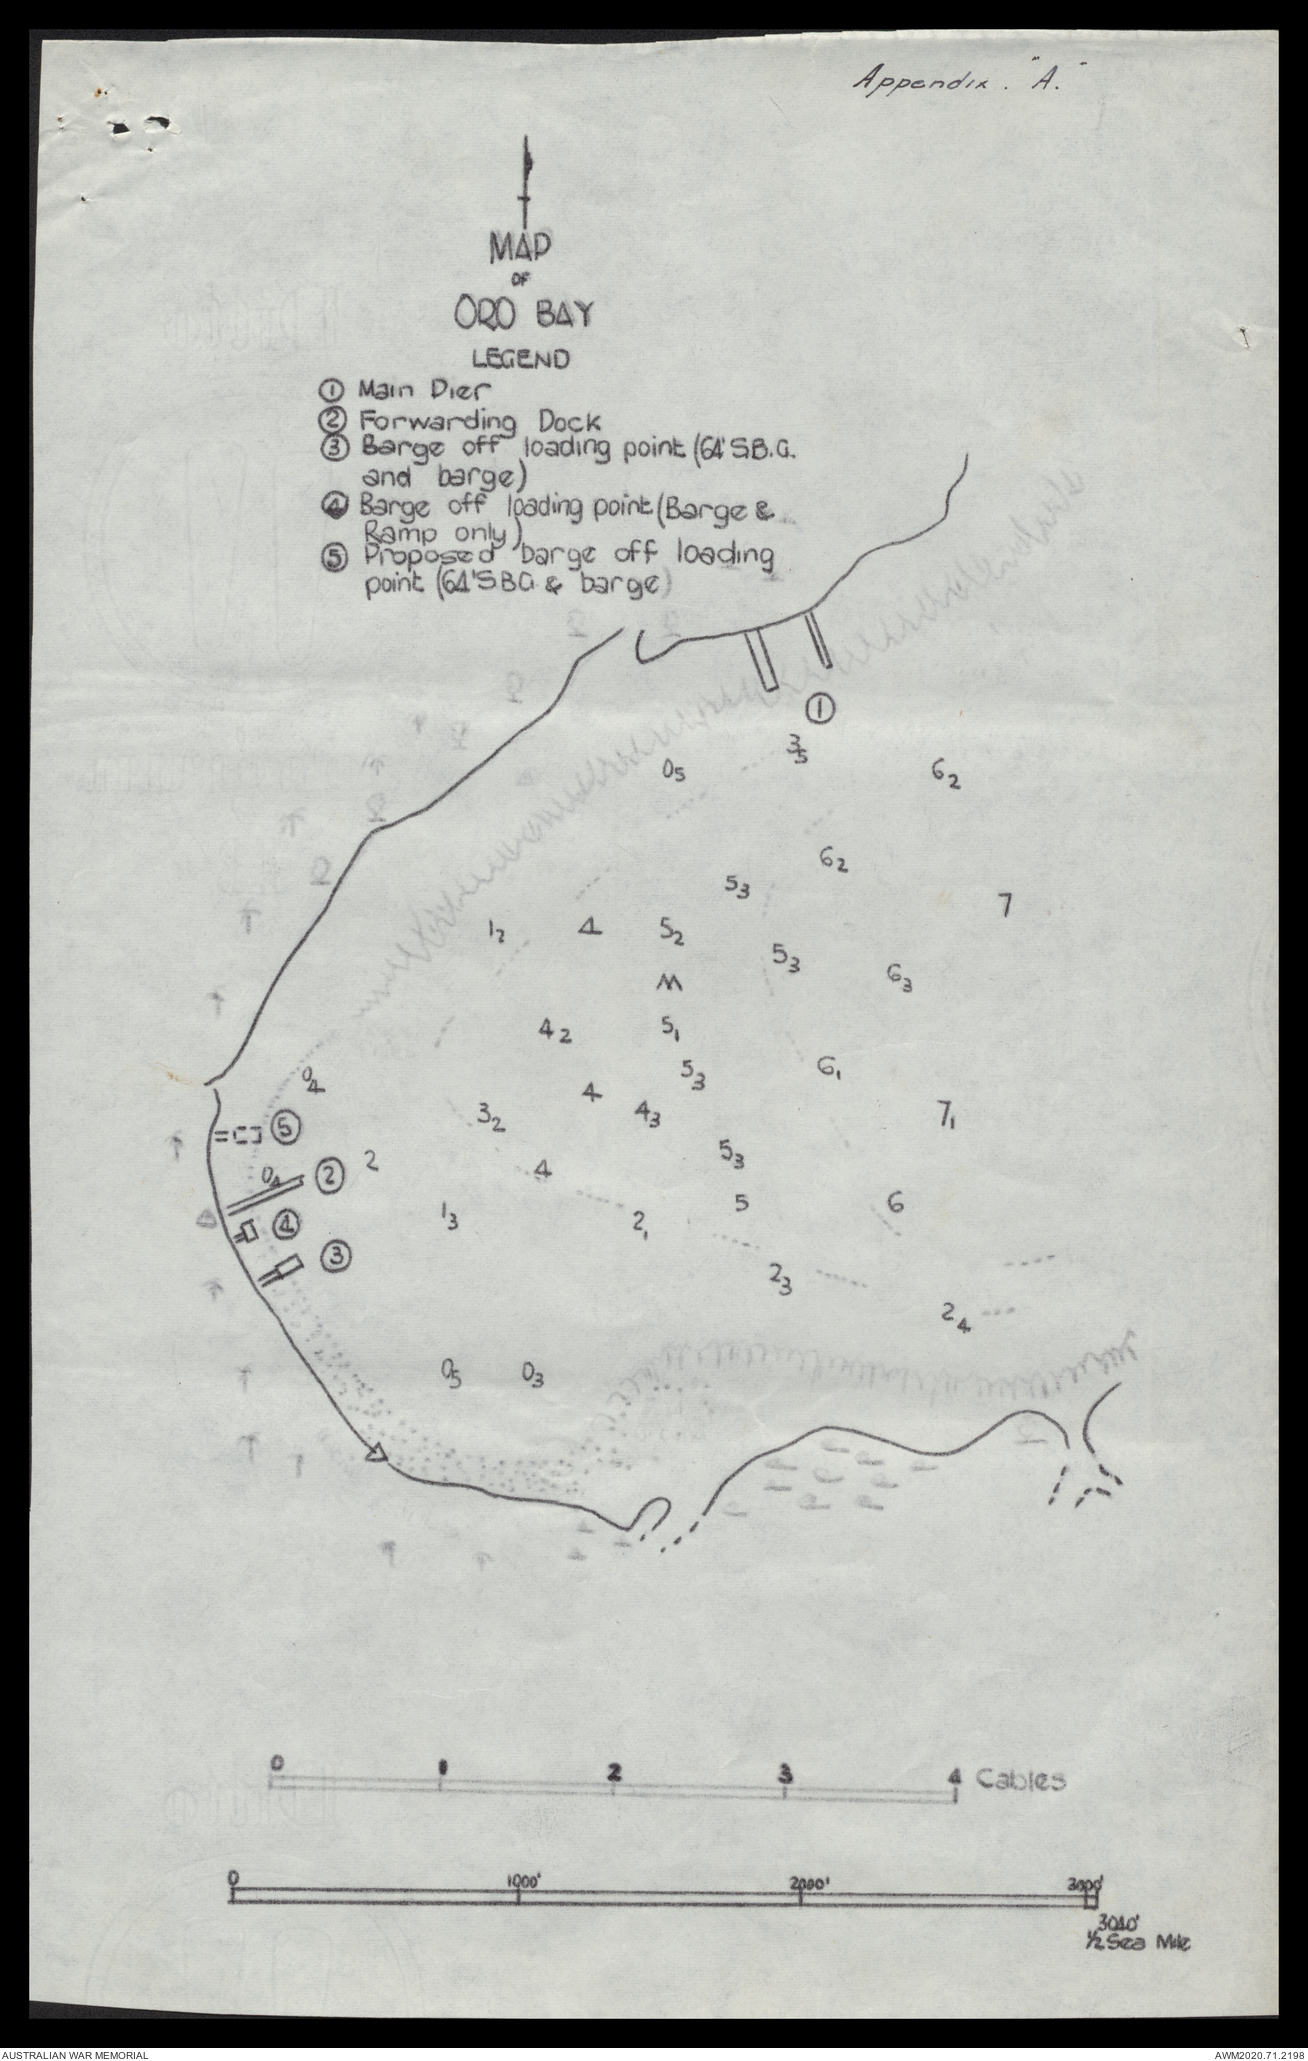 Appendix. "A."
MAP
OF
ORO BAY
LEGEND
① Main Pier
② Forwarding Dock
③ Barge off loading point (64' S.B.G.
and barge)
④ Barge off loading point (Barge &
Ramp only)
⑤ Proposed barge off loading
point (64' S.B.G. & barge)
①
3₅
0₅ 6₂
6₂
5₃
7
1₂ 4 5₂
5₃
6₃
M
4₂ 5₁
5₃ 6₁
0₄
4
3₂ 4₃ 7₁
⑤
5₃
2
4
0₄ ②
5 6
1₃ 2₁
④
③
2₃
2₄
0₅ 0₃
0 1 2 3 4 Cables
0 1000' 2000' 3000'
3040'
½ Sea Mile
AUSTRALIAN WAR MEMORIAL AWM2020.71.2198